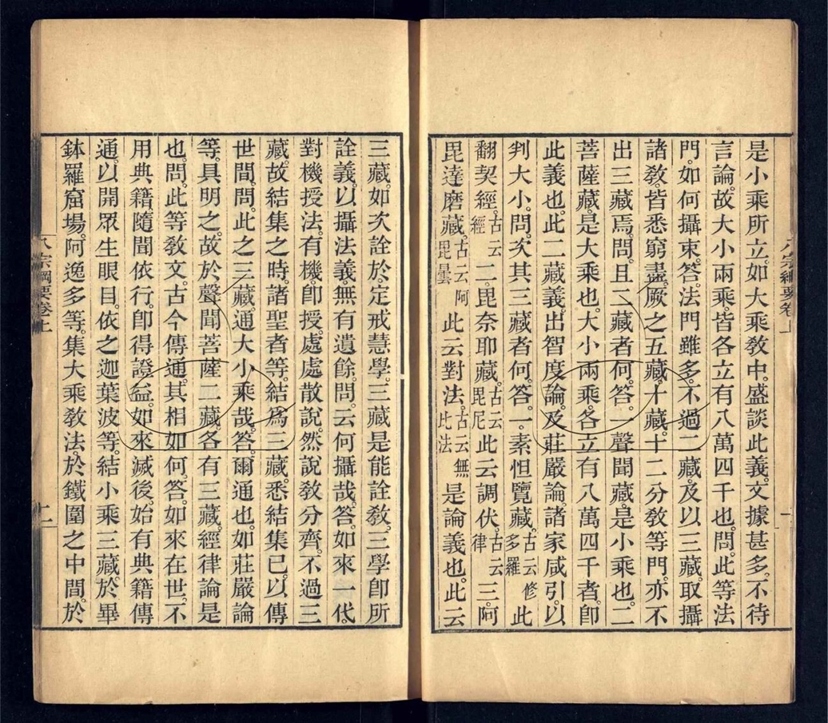 是小乘所立。如大乘敎中。盛談此義。文據甚多。不待
言論。故大小兩乘皆各立有八萬四千也。問。此等法
門。如何攝束。答。法門雖多。不過二藏。及以三藏。取攝
諸敎。皆悉窮盡。厥之五藏。十藏。十二分敎等門。亦不
出三藏焉。問。且二藏者何。答。一聲聞藏。是小乘也。二
菩薩藏。是大乘也。大小兩乘。各立有八萬四千者。卽
此義也。此二藏義。出智度論。及莊嚴論。諸家咸引。以
判大小。問。次其三藏者何。答。一。素怛覽藏。古云修多羅此
翻契經。古云經二。毘奈耶藏。古云毘尼此云調伏。古云律三。阿
毘達磨藏。古云阿毘曇此云對法。古云無比法是論義也。此云
三藏。如次詮於定戒慧學。三藏是能詮敎。三學卽所
詮義。以攝法義。無有遺餘。問。云何攝哉。答。如來一代。
對機授法。有機卽授。處處散說。然說敎分齊。不過三
藏。故結集之時。諸聖者等。結爲三藏。悉結集已。以傳
世間。問。此之三藏。通大小乘哉。答。爾通也。如莊嚴論
等。具明之。故於聲聞菩薩二藏。各有三藏。經律論是
也。問。此等敎文。古今傳通。其相如何。答。如來在世。不
用典籍。隨聞依行。卽得證益。如來滅後。始有典籍傳
通。以開眾生眼目。依之迦葉波等。結小乘三藏於畢
鉢羅窟場。阿逸多等。集大乘敎法。於鐵圍之中間。於
八宗綱要卷上
八宗綱要卷上
二